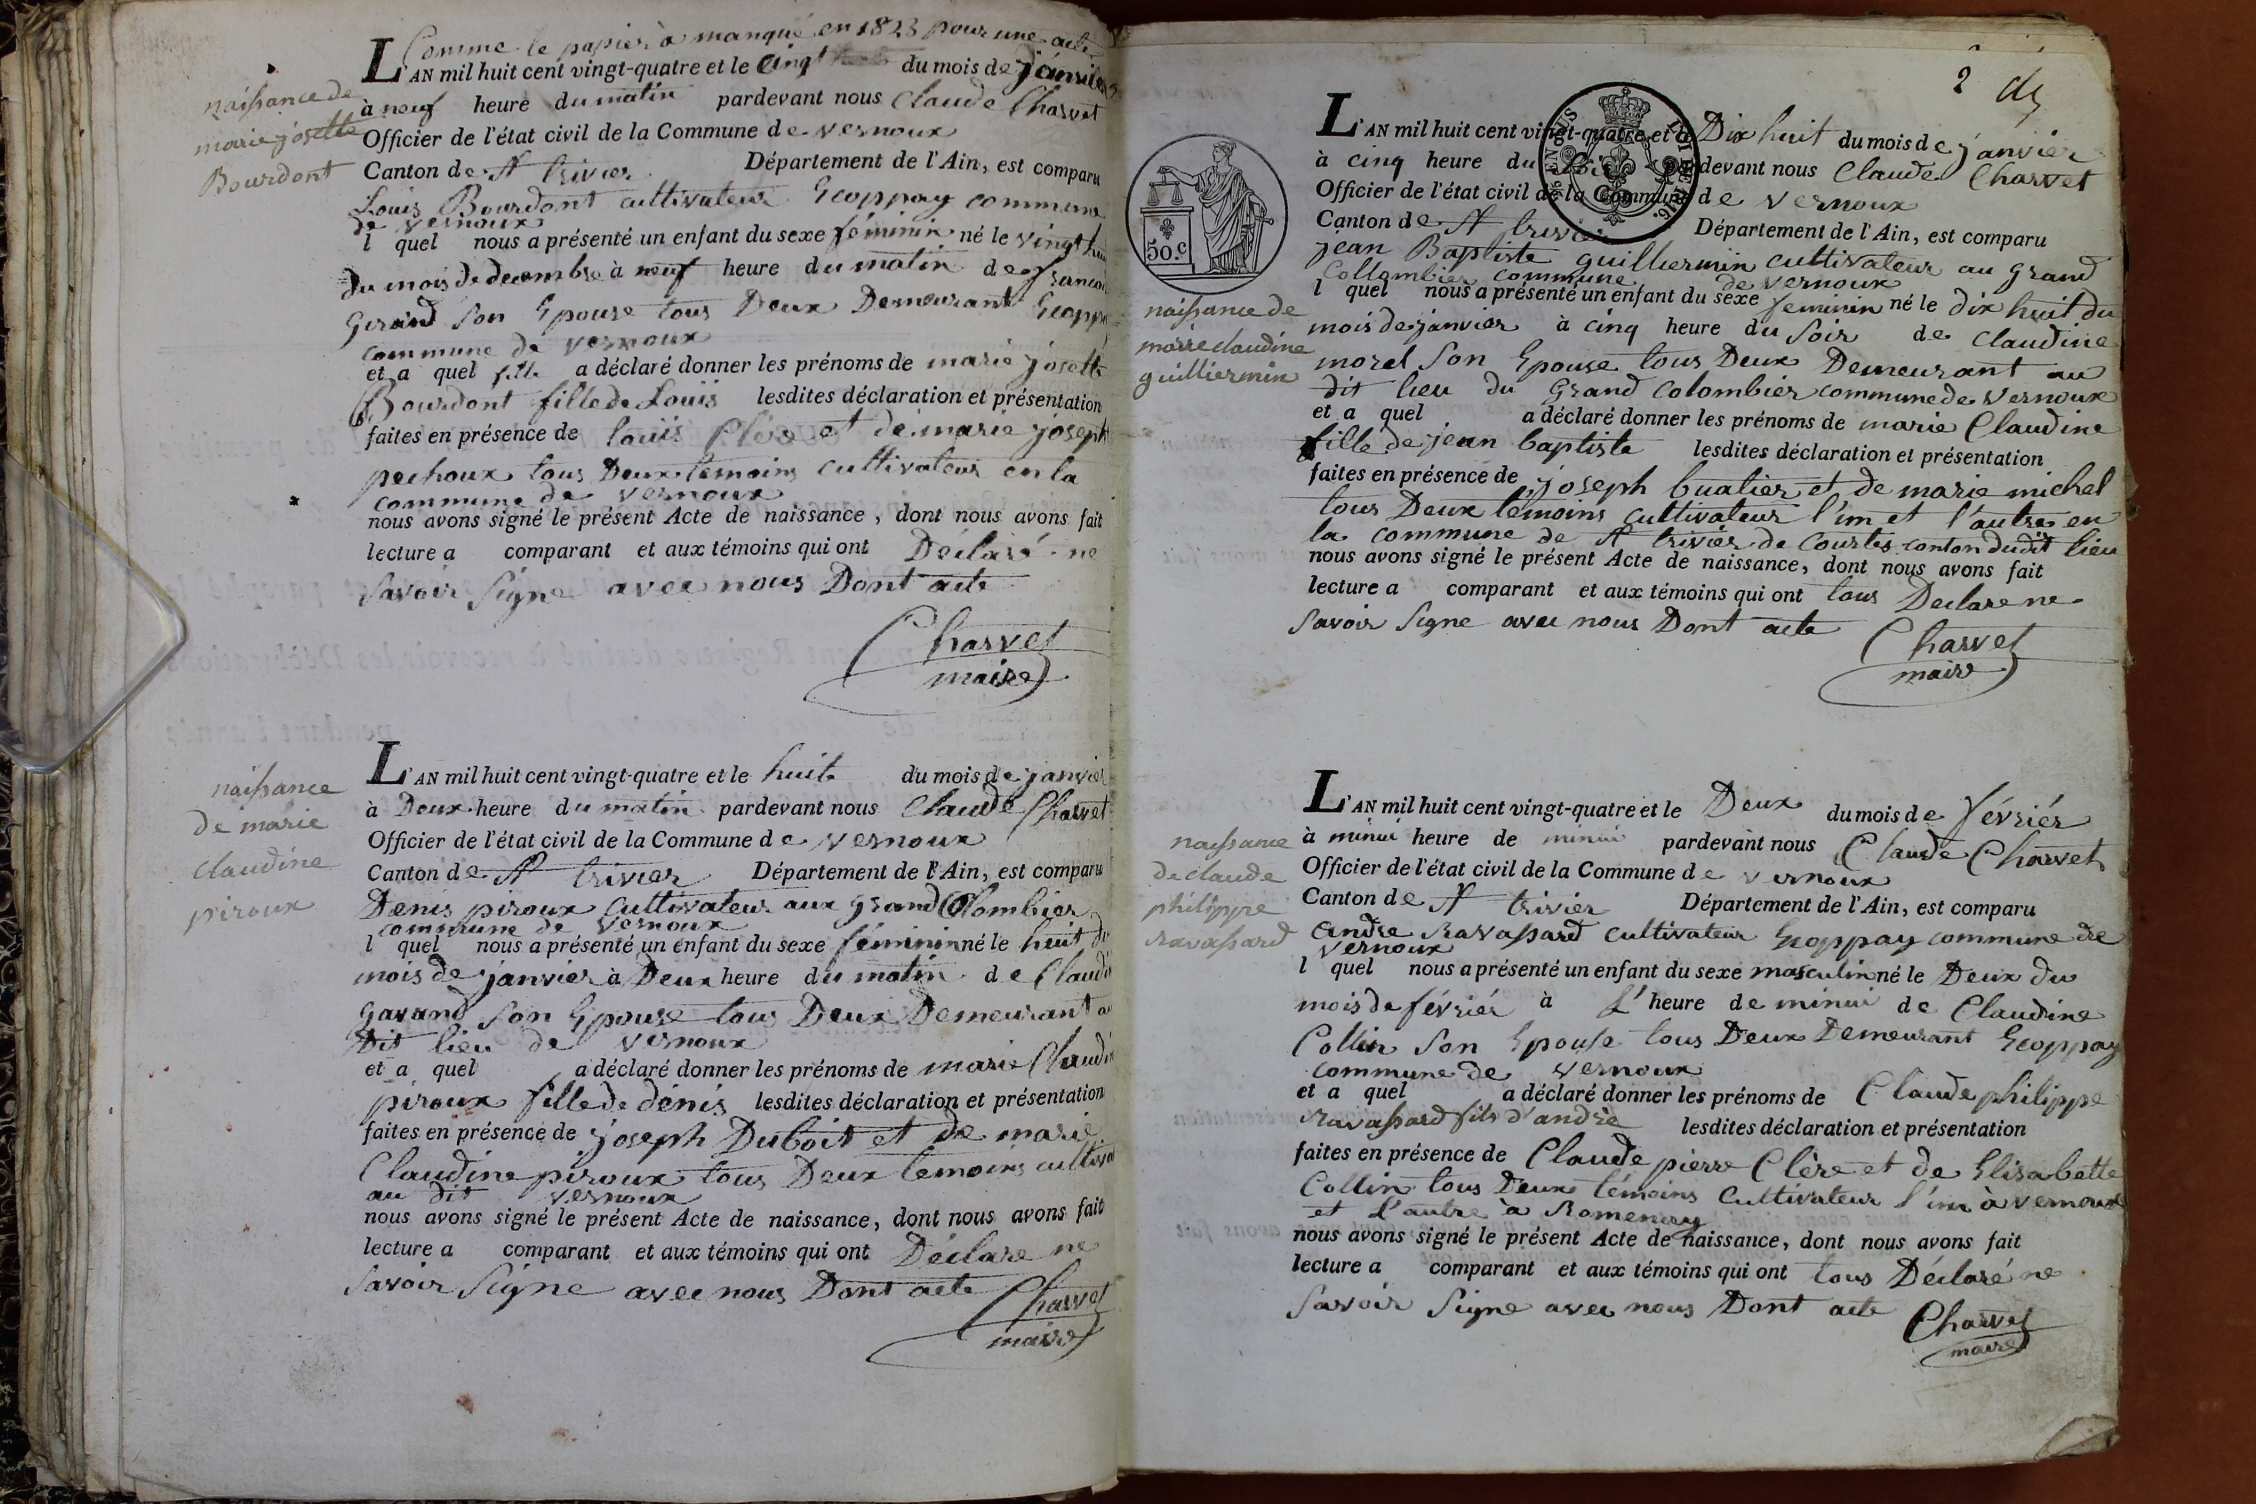 Comme le papier à manqué en 1823 pour une acte
L'AN mil huit cent vingt-quatre et le Cinq du mois de janvier
à neuf heure du matin pardevant nous Claude Charvet
Officier de l'état civil de la Commune de vernoux
Canton de St trivier Département de l'Ain, est comparu
Louis Bourdont cultivateur Ecoppay commune
de vernoux
l quel nous a présenté un enfant du sexe féminin né le vingt
du mois de decembre à neuf heure du matin de
Girand Son Epouse tous Deux Demeurant
commune de vernoux
et a quel fille a déclaré donner les prénoms de marie josette
Bourdont fille de Louis lesdites déclaration et présentation
faites en présence de louis Clere et de marie joseph
pechoux tous Deux temoins cultivateurs en la
commune de vernoux
nous avons signé le présent Acte de naissance, dont nous avons fait
lecture a comparant et aux témoins qui ont Déclaré ne
Savoir Signe avec nous Dont acte
Charvet
maire
naissance de
marie josette
Bourdont
L'AN mil huit cent vingt-quatre et le huit du mois de janvier
à Deux heure du matin pardevant nous Claude Charvet
Officier de l'état civil de la Commune de vernoux
Canton de St trivier Département de l'Ain, est comparu
Denis piroux cultivateur aux grand Colombier
commune de vernoux
l quel nous a présenté un enfant du sexe féminin né le huit du
mois de janvier à Deux heure du matin de
gavand Son Epouse tous Deux Demeurant
Dit lieu de vernoux
et a quel a déclaré donner les prénoms de marie
piroux fille de dénis lesdites déclaration et présentation
faites en présence de joseph Duboit et de marie
Claudine piroux tous Deux temoins
au dit vernoux
nous avons signé le présent Acte de naissance, dont nous avons fait
lecture a comparant et aux témoins qui ont Déclare ne
Savoir Signe avec nous Dont acte
Charvet
maire
naissance
de marie
claudine
piroux
2
L'AN mil huit cent vingt-quatre et le Dix huit du mois de janvier
à cinq heure du soir pardevant nous Claude Charvet
Officier de l'état civil de la Commune de vernoux
Canton de St trivier Département de l'Ain, est comparu
jean Baptiste guilliermin cultivateur au grand
Collombier commune de vernoux
l quel nous a présenté un enfant du sexe feminin né le dix huit du
mois de janvier à cinq heure du soir de claudine
morel Son Epouse tous Deux Demeurant au
dit lieu du Grand Colombier commune de vernoux
et a quel a déclaré donner les prénoms de marie Claudine
fille de jean baptiste lesdites déclaration et présentation
faites en présence de joseph buatier et de marie michel
tous Deux témoins cultivateur l'un et l'autre en
la commune de St trivier de Courtes canton dudit lieu
nous avons signé le présent Acte de naissance, dont nous avons fait
lecture a comparant et aux témoins qui ont tous Declare ne
Savoir Signe avec nous Dont acte
Charvet
maire
50.c
naissance de
marie claudine
guilliermin
L'AN mil huit cent vingt-quatre et le Deux du mois de février
à minui heure de minui pardevant nous Claude Charvet
Officier de l'état civil de la Commune de vernoux
Canton de St trivier Département de l'Ain, est comparu
andre Ravassard cultivateur Ecoppay commune de
vernoux
l quel nous a présenté un enfant du sexe masculin né le Deux du
mois de février à l' heure de minui de Claudine
Collin Son Epouse tous Deux Demeurant Ecoppay
commune de vernoux
et a quel a déclaré donner les prénoms de Claude philippe
Ravassard fils d'andre lesdites déclaration et présentation
faites en présence de Claude pierre Clère et de Elisabette
Collin tous Deux témoins cultivateur l'un à vernoux
et l'autre à Romenay
nous avons signé le présent Acte de naissance, dont nous avons fait
lecture a comparant et aux témoins qui ont tous Déclaré ne
Savoir Signe avec nous Dont acte
Charvet
maire
naissance
de claude
philippe
ravassard